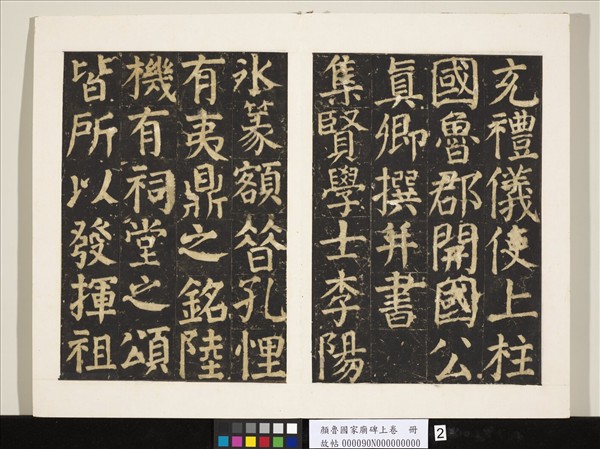 充禮儀使上柱
國魯郡開國公
眞卿撰并書
集賢學士李陽
氷篆額昔孔悝
有夷鼎之銘陸
機有祠堂之頌
皆所以發揮祖
顏魯國家廟碑上卷 冊
故帖 000090N000000000
2